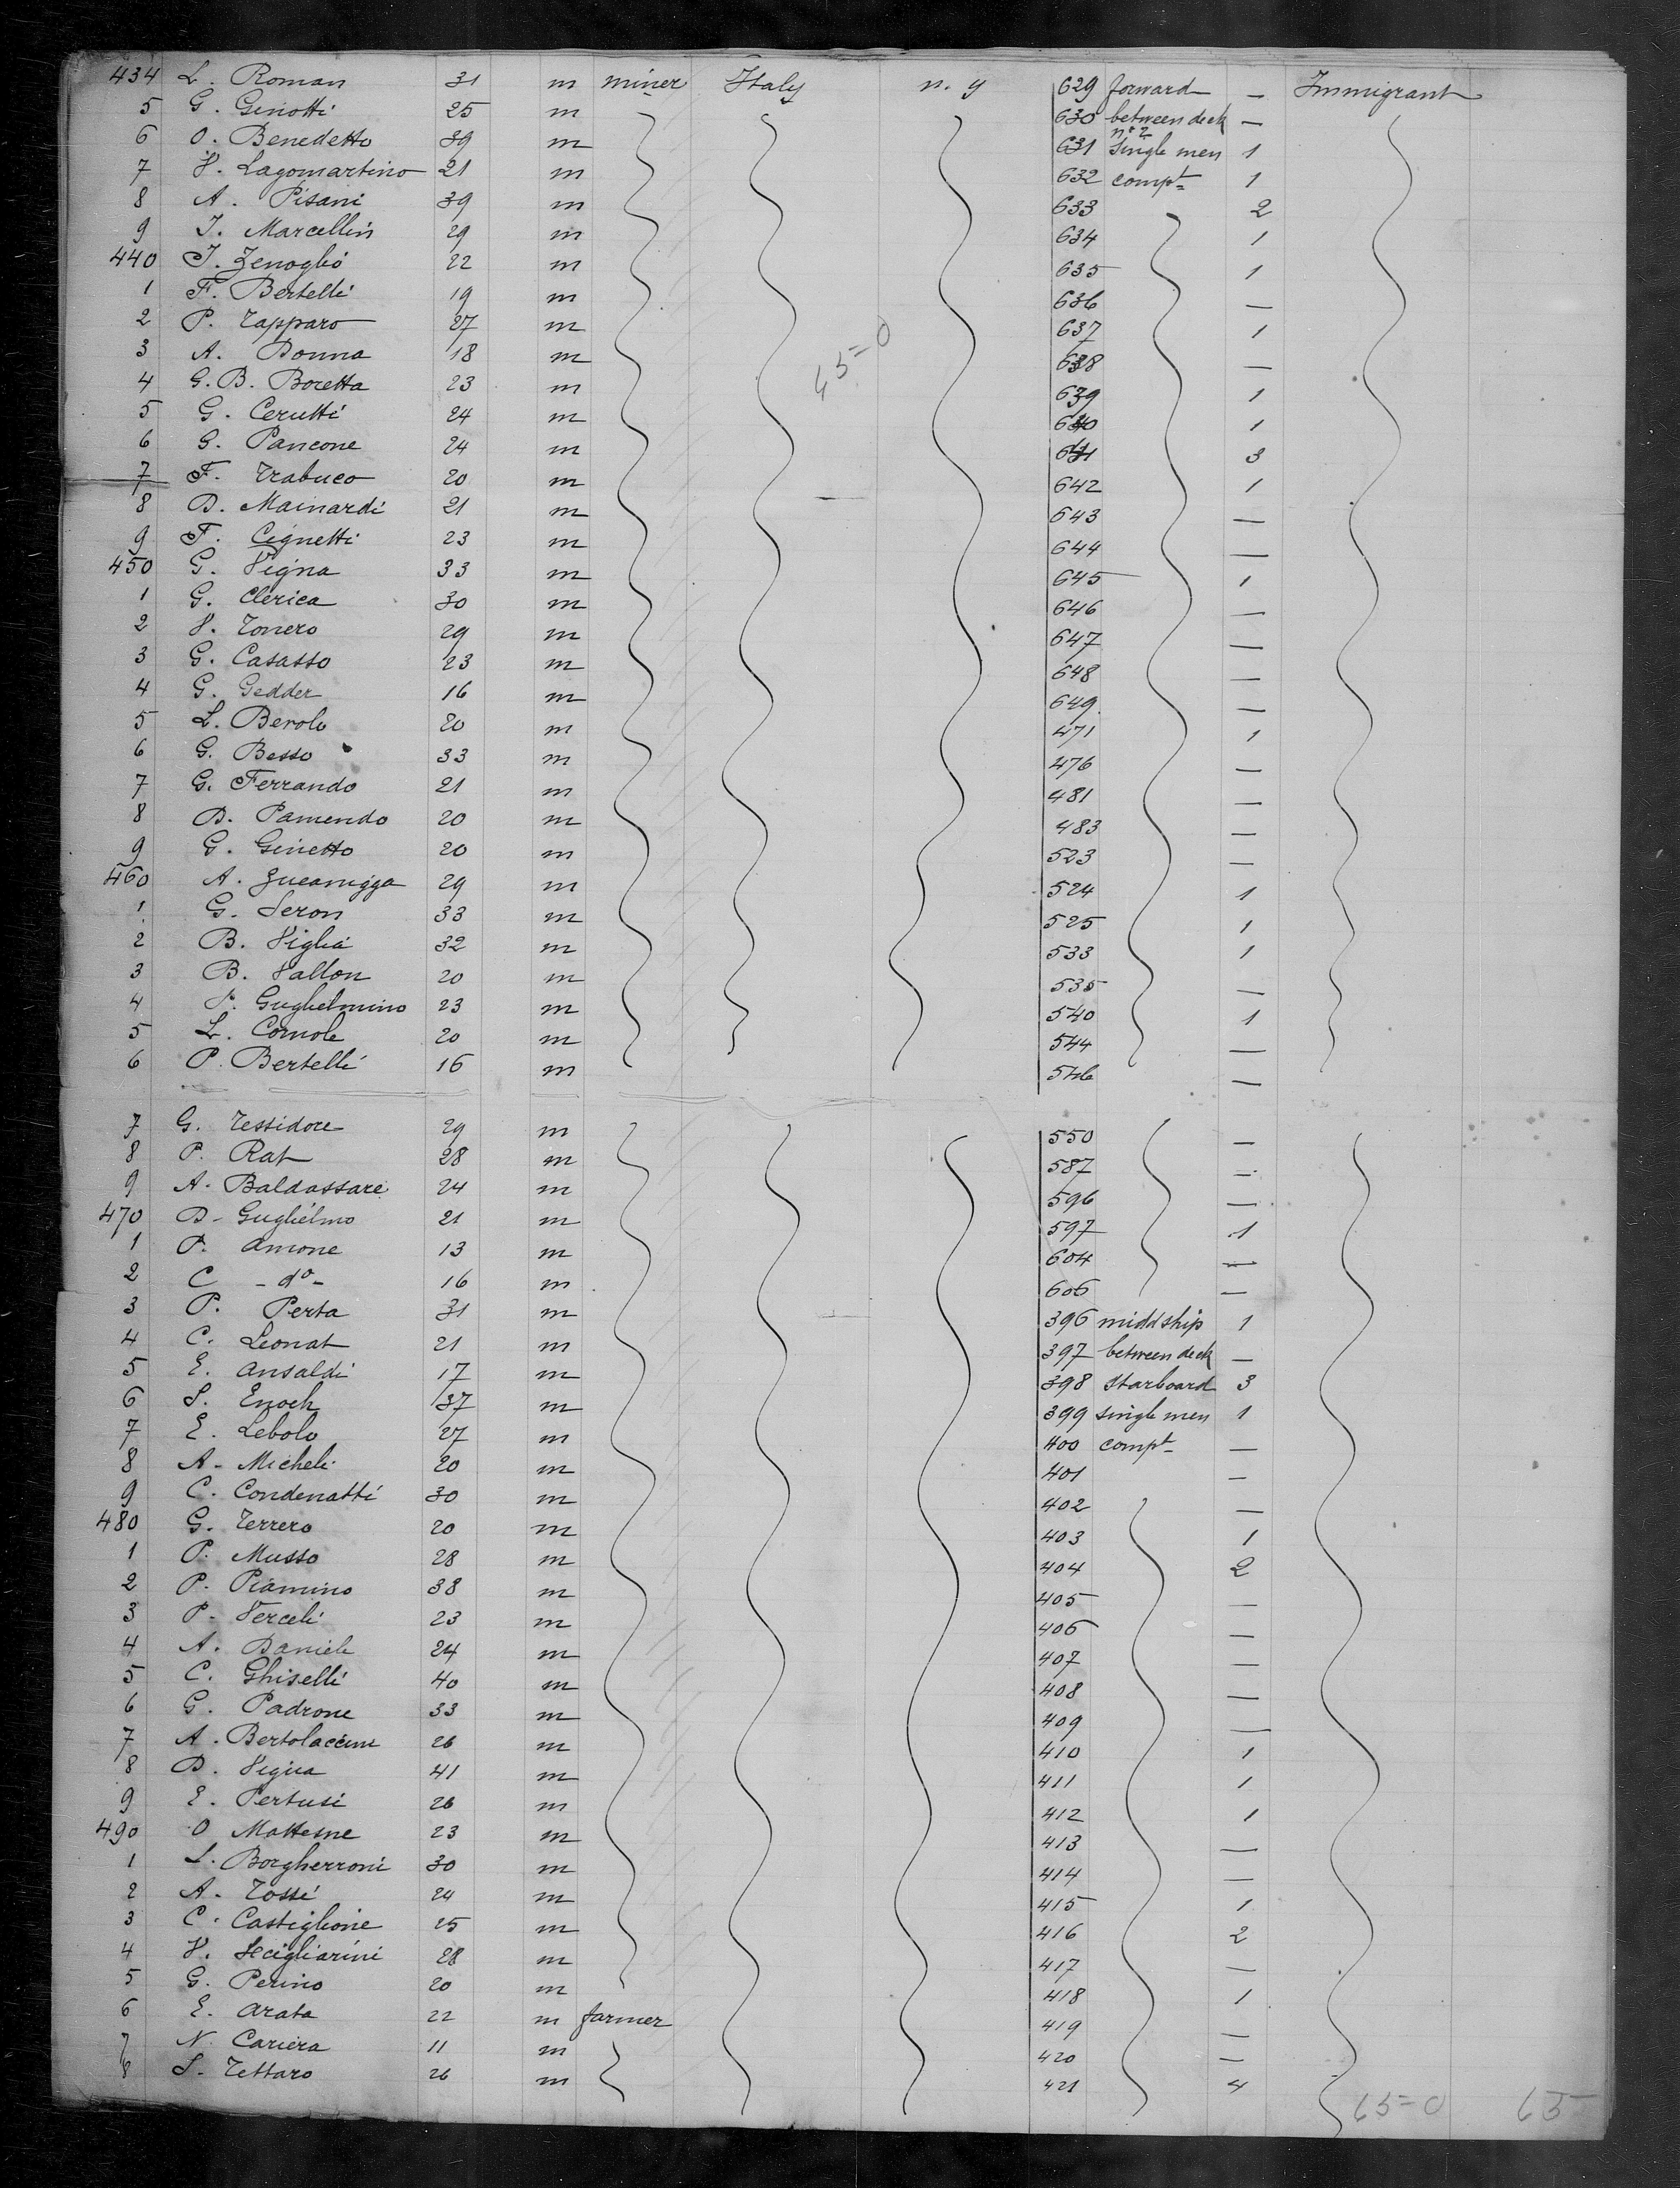 434 L. Roman 31 m miner Italy n.y 629 forward — Immigrant
5 G. Ginotti 25 m 630 between deck —
6 O. Benedetto 39 m 631 n° 2 single men 1
7 V. Lagomartino 21 m 632 compt 1
8 A. Pisani 39 m 633 2
9 J. Marcellin 29 m 634 1
440 J. Zenoglio 22 m 635 1
1 F. Bertelli 19 m 636 —
2 P. Tapparo 27 m 637 1
3 A. Bonna 18 m 638 —
4 G.B. Boretta 23 m 639 1
5 G. Cerutti 24 m 640 1
6 G. Pancone 24 m 641 3
7 F. Trabuco 20 m 642 1
8 D. Mainardi 21 m 643 —
9 F. Cignetti 23 m 644 —
450 G. Vigna 33 m 645 1
1 G. Clerica 30 m 646 —
2 V. Tonero 29 m 647 —
3 G. Casasso 23 m 648 —
4 G. Gedder 16 m 649 —
5 L. Berolo 20 m 471 1
6 G. Besso 33 m 476 —
7 G. Ferrando 21 m 481 —
8 D. Pamendo 20 m 483 —
9 G. Ginetto 20 m 523 —
460 A. 29 m 524 1
1 G. Seron 33 m 525 1
2 B. Viglia 32 m 533 1
3 B. Vallon 20 m 535 —
4 P. Guglielmino 23 m 540 1
5 L. Comole 20 m 544 —
6 P. Bertelli 16 m 546 —
7 G. Tessidore 29 m 550 —
8 P. Rat 28 m 587 —
9 A. Baldassare 24 m 596 —
470 D. Guglielmo 21 m 597 1
1 P. Amone 13 m 604 —
2 C -do- 16 m 606 —
3 P. Perta 31 m 396 middship 1
4 C. Leonat 21 m 397 between deck —
5 E. Ansaldi 17 m 398 starboard 3
6 S. Enoch 37 m 399 single men 1
7 E. Lebolo 27 m 400 compt —
8 A. Micheli 20 m 401 —
9 C. Condenatti 30 m 402 —
480 G. Terrero 20 m 403 1
1 P. Musso 28 m 404 2
2 P. Piamino 38 m 405 —
3 P. Verceli 23 m 406 —
4 A. Daniele 24 m 407 —
5 C. Ghiselli 40 m 408 —
6 G. Padrone 33 m 409 —
7 A. Bertolaccini 26 m 410 1
8 D. Vigna 41 m 411 1
9 E. Pertusi 26 m 412 1
490 O Matteine 23 m 413 —
1 L. Borgherroni 30 m 414 —
2 A. Tossi 24 m 415 1
3 C. Castiglione 25 m 416 2
4 V. Scigliarini 28 m 417 —
5 G. Perino 20 m 418 1
6 E. Arata 22 m farmer 419 —
7 N. Cariera 11 m 420 —
8 S. Tettaro 26 m 421 4
65=0 65